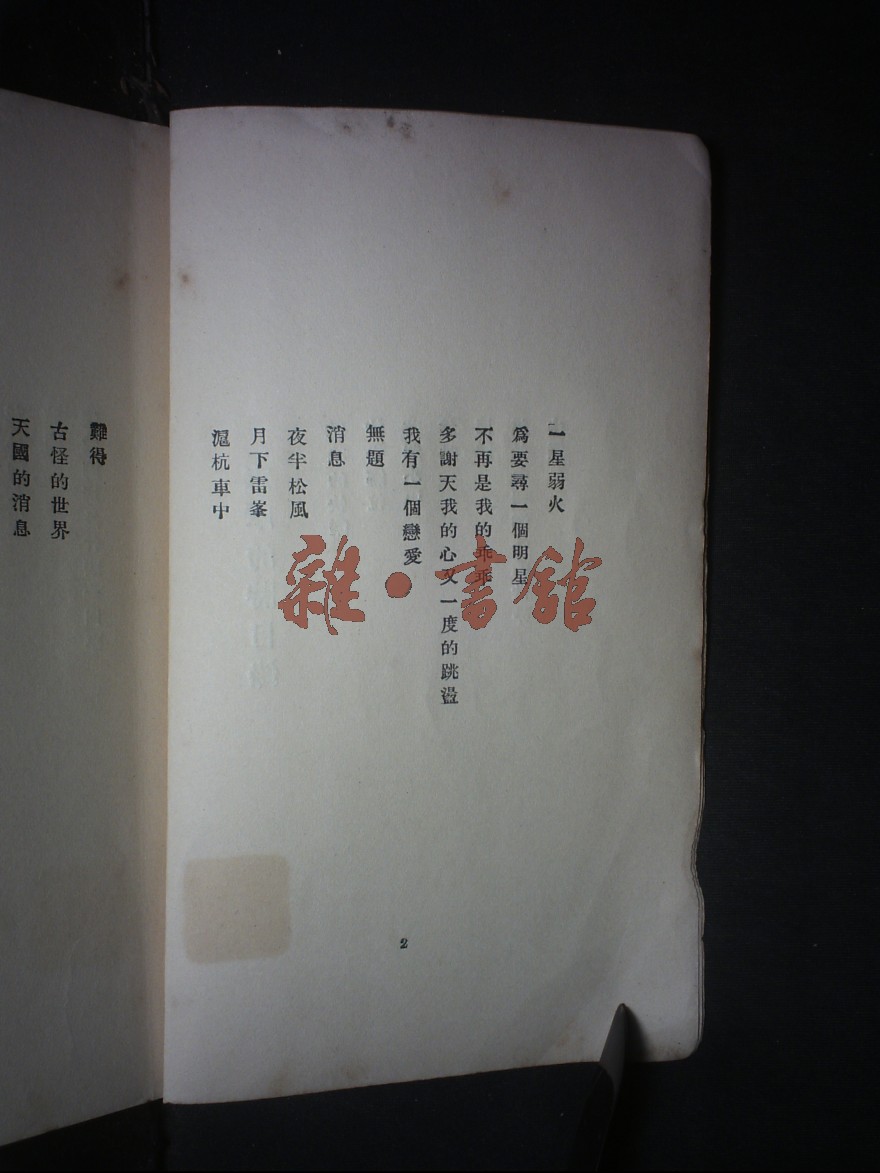 一星弱火
為要尋一個明星
不再是我的乖乖
多謝天我的心又一度的跳盪
我有一個戀愛
無題
消息
夜半松風
月下雷峯
滬杭車中
2
難得
古怪的世界
天國的消息
雜·書館